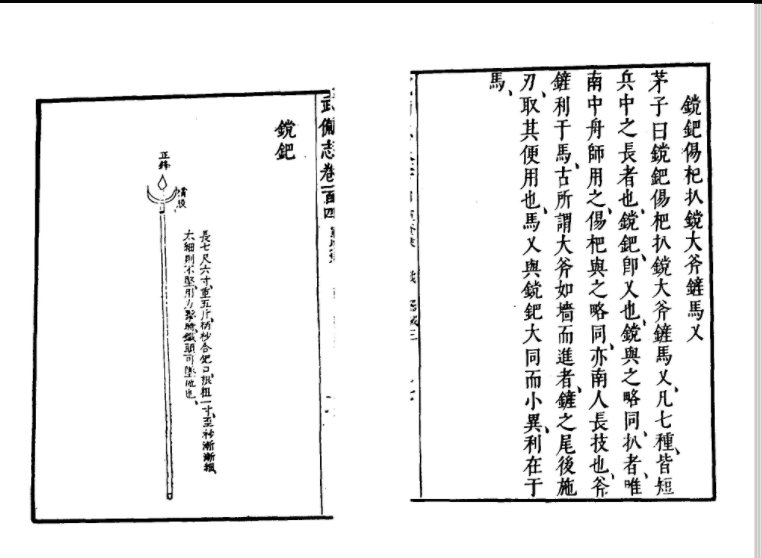 鎲鈀傷杷扒鎲大斧鏟馬叉
茅子曰鎲鈀傷杷扒鎲大斧鏟馬叉、凡七種、皆短
兵中之長者也、鎲鈀、即叉也、鎲與之略同、扒者、唯
南中舟師用之、傷杷與之略同、亦南人長技也、斧
鏟利于馬、古所謂大斧如墻而進者、鏟之尾後施
刃、取其便用也、馬叉與鎲鈀大同而小異、利在于
馬、
武備志卷一百四
鎲鈀
正鋒
橫股
長七尺六寸、重五斤、柄杪合鈀口、根粗一寸、至杪漸漸
太細則不堅、用力擊鐵頭可墜地也、